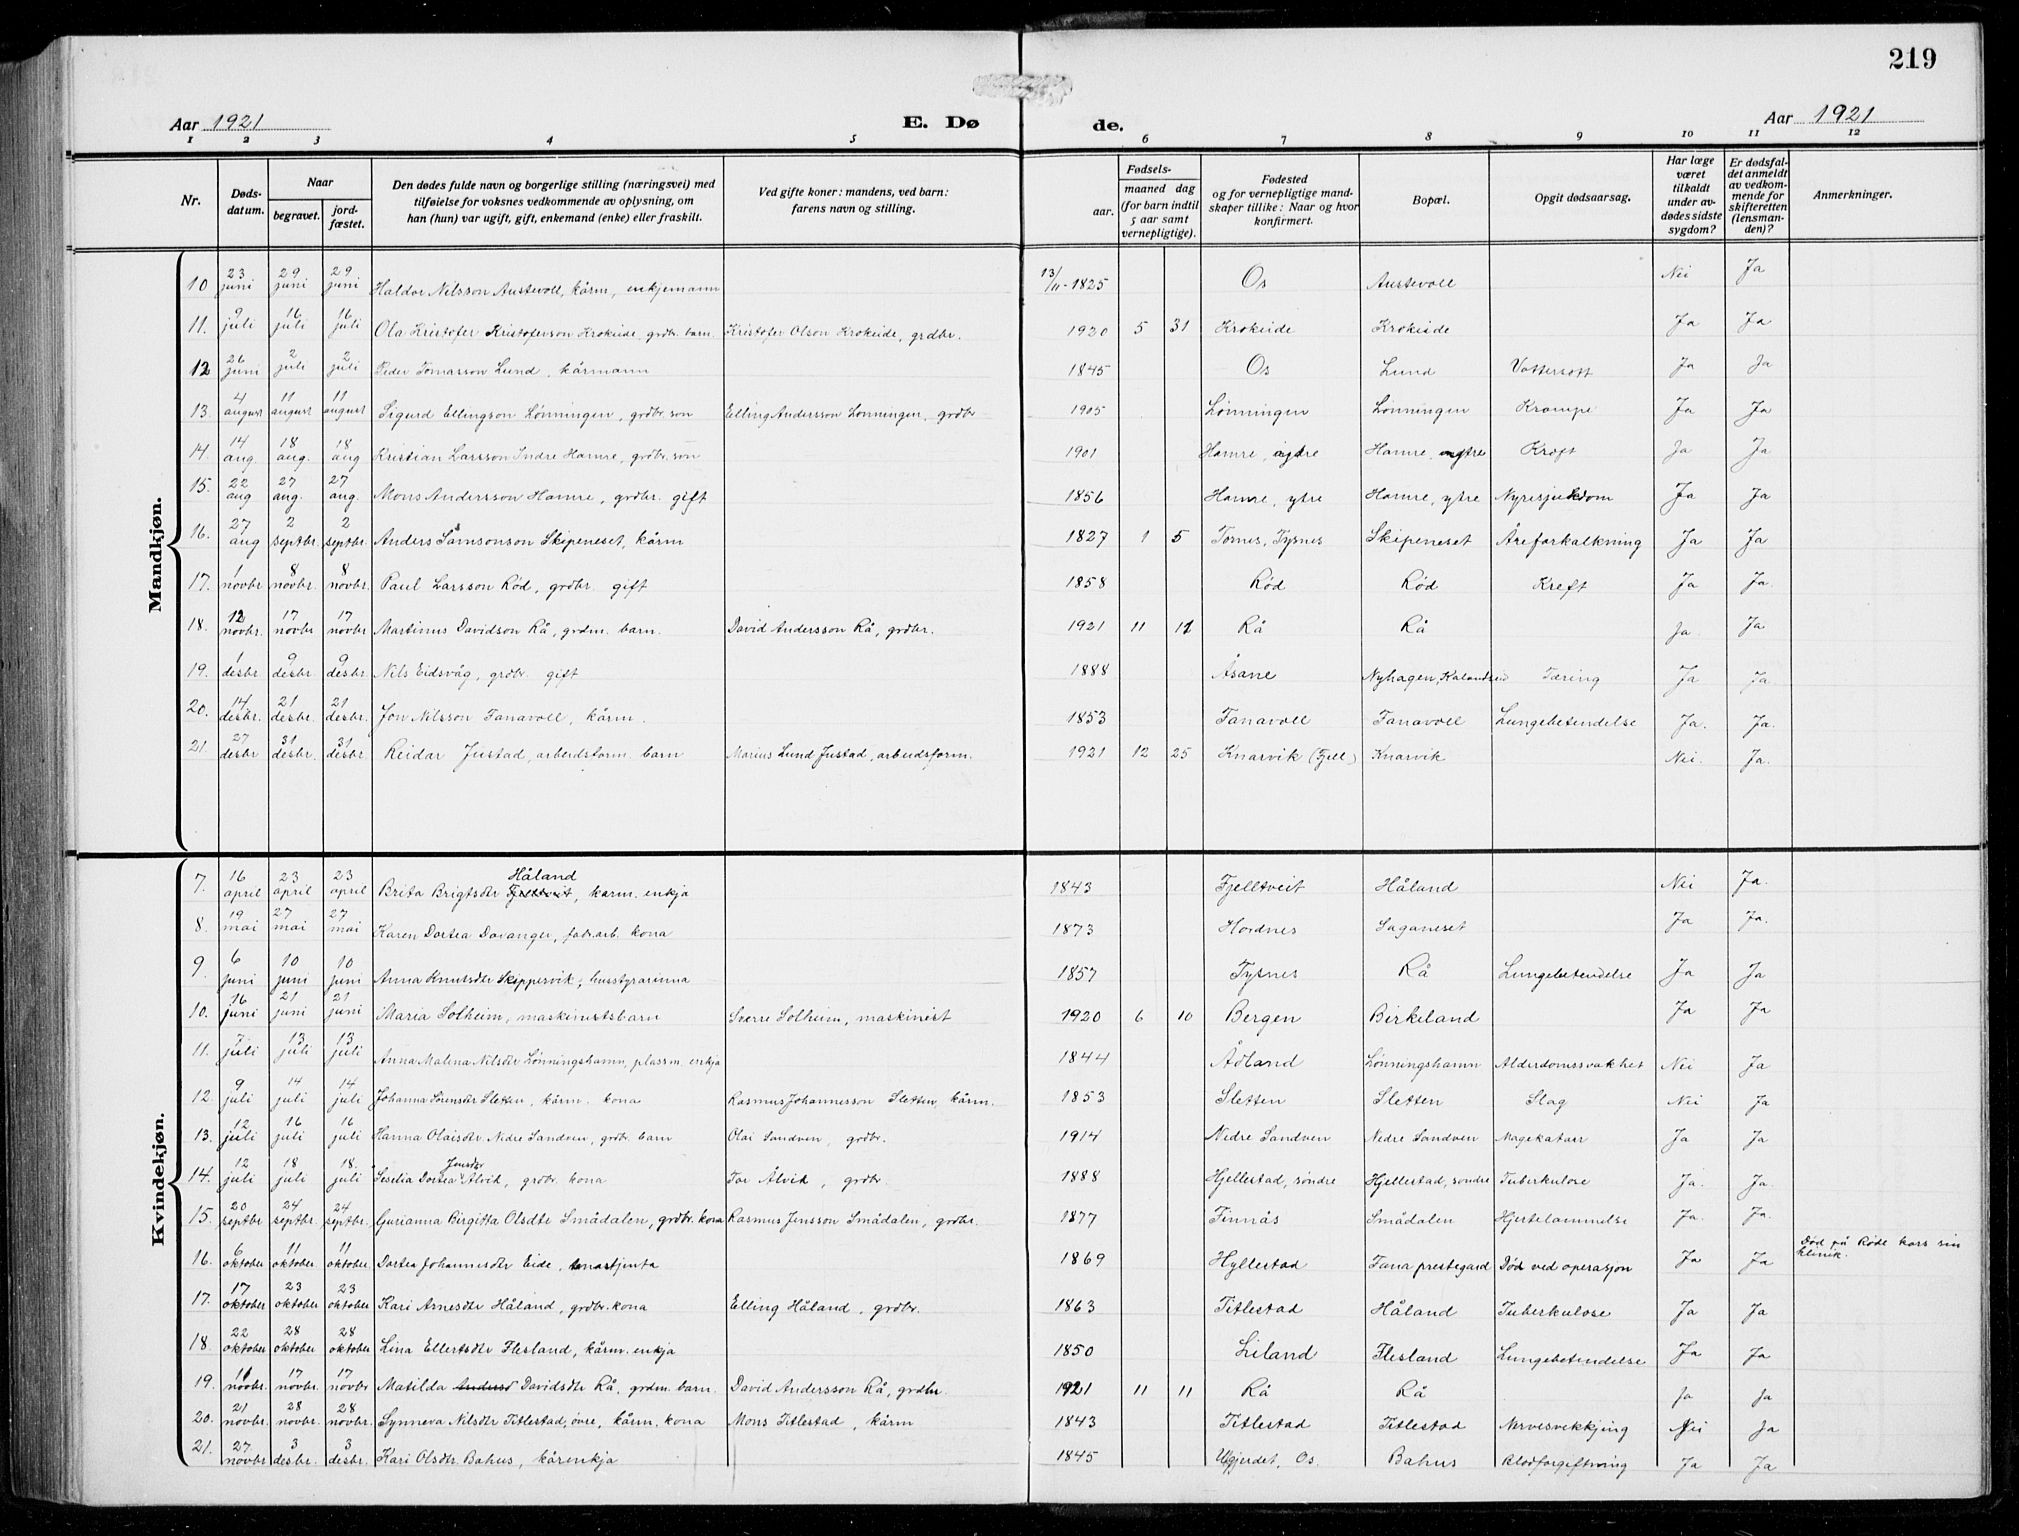 219
Aar 1921 E. Dø de. Aar 1921
1 2 3 4 5 6 7 8 9 10 11 12
Nr. Døds-datum. Naar begravet. jord-fæstet. Den dødes fulde navn og borgerlige stilling (næringsvei) med tilføielse for voksnes vedkommende av oplysning, om han (hun) var ugift, gift, enkemand (enke) eller fraskilt. Ved gifte koner: mandens, ved barn: farens navn og stilling. Fødsels- aar. maaned dag (for barn indtil 5 aar samt vernepligtige). Fødested og for vernepligtige mand-skaper tillike: Naar og hvor konfirmert. Bopæl. Opgit dødsaarsag. Har læge været tilkaldt under av-dødes sidste sygdom? Er dødsfal-det anmeldt av vedkom-mende for skifteretten (lensman-den)? Anmerkninger.
Mandkjøn.
10 23 juni 29 juni 29 juni Haldor Nilsson Austevoll, kårm, enkjemann 13/11-1825 Os Austevoll Nei Ja
11. 9 juli 16 juli 16 juli Ola Kristofer Kristoferson Krokeide, grdbr. barn. Kristofer Olson Krokeide, grdbr. 1920 5 31 Krokeide Krokeide Ja Ja
12 26 juni 2 juli 2 juli Peder Tomasson Lund, kårmann 1845 Os Lund Vattersott Ja Ja
13. 4 august 11 august 11 august Sigurd Ellingson Lønningen, grdbr. son Elling Andersson Lønningen, grdbr 1905 Lønningen Lønningen Krampe Ja Ja
14. 14 aug. 18 aug. 18 aug Kristian Larsson Indre Hamre, grdbr. son 1901 Hamre, Hamre, Kreft Ja Ja
15. 22 aug 27 aug. 27 aug. Mons Andersson Hamre, grdbr. gift 1856 Hamre, ytre Hamre, ytre Nyresjukdom Ja Ja
16. 27 aug 2 septbr. 2 septbr. Anders Samsonson Skipeneset, kårm 1827 1 5 Tornes, Tysnes Skipeneset Åreforkalkning Ja Ja
17. 1 novbr 8 novbr. 8 novbr. Paul Larsson Rød, grdbr. gift 1858 Rød Rød Kreft Ja Ja.
18. 12 novbr. 17 novbr 17 novbr Martinus Davidson Rå, grdm. barn. David Andersson Rå, grdbr. 1921 11 11 Rå Rå Ja. Ja
19. 1 desbr 9 desbr. 9 desbr. Nils Eidsvåg, grdbr. gift 1888 Åsane Nyhagen, Kalandseid Tæring Ja Ja.
20. 14 desbr. 21 desbr. 21 desbr. Jon Nilsson Fanavoll, kårm. 1853 Fanavoll Fanavoll Lungebetendelse Ja. Ja.
21. 27 desbr 31 desbr. 31 desbr. Reidar Justad, arbeidsform. barn Marius Lund Justad, arbeidsform. 1921 12 25 Knarvik (Fjell) Knarvik Nei. Ja.
Kvindekjøn.
7. 16 april 23 april 23 april Brita Brigtsdtr Fjelltveit Håland, kårm. enkja 1843 Fjelltveit Håland Nei Ja.
8. 19 mai 27 mai 27 mai Karen Dortea Davanger, fabr.arb. kona 1873 Hordnes Saganeset Ja Ja.
9. 6 juni 10 juni 10 juni Anna Knutsdtr Skippervik, husstyrarinna 1857 Tysnes Rå Lungebetendelse Ja Ja
10. 16 juni 21 juni 21 juni Maria Solheim, maskinistsbarn Sverre Solheim, maskinist 1920 6 10 Bergen Birkeland Ja Ja
11. 7 juli 13 juli 13 juli Anna Malena Nilsdtr Lønningshamn, plassm. enkja 1844 Ådland Lønningshamn Alderdomssvakhet Nei Ja
12. 9 juli 14 juli 14 juli Johanna Sørensdtr Sletten, kårm. kona Rasmus Johannesson Sletten, kårm. 1853 Sletten Sletten Slag Nei Ja
13. 12 juli 16 juli 16 juli Hanna Olaisdtr Nedre Sandven, grdbr. barn Olai Sandven, grdbr. 1914 Nedre Sandven Nedre Sandven Magekatarr Ja Ja
14. 12 juli 18 juli 18. juli Seselia Dortea Jensdtr Ålvik, grdbr. kona Tor Ålvik, grdbr. 1888 Hjellestad, søndre Hjellestad, søndre Tuberkulose Ja. Ja.
15. 20 septbr 24 septbr. 24 septbr. Gurianna Birgitta Olsdtr Smådalen, grdbr. kona Rasmus Jensson Smådalen, grdbr. 1877 Finnås Smådalen Hjertelammelse Ja. Ja.
16. 6 oktober 11 oktober 11 oktober Dortea Johannesdtr Eide, 1869 Hyllestad Fana prestegard Død ved operasjon Ja Ja Død på Røde kors sin klinik.
17. 17 oktober 23 oktober 23 oktober Kari Arnesdtr Håland, grdbr. kona Elling Håland, grdbr. 1863 Titlestad Håland Tuberkulose Ja Ja
18. 22 oktober 28 oktober 28 oktober Lina Ellertsdtr Flesland, kårm. enkja 1850 Liland Flesland Lungebetendelse Ja Ja
19. 11 novbr. 17 novbr. 17 novbr Matilda Andersd Davidsdtr Rå, grdm. barn. David Andersson Rå, grdbr. 1921 11 11 Rå Rå Ja Ja
20. 21 novbr. 28 novbr. 28 novbr. Synneva Nilsdtr Titlestad, øvre, kårm. kona Mons Titlestad, kårm 1843 Titlestad Titlestad Nervesvekkjing Nei Ja
21. 27. novbr 3 desbr. 3 desbr. Kari Olsdtr. Bahus, kårenkja 1845 Os. Bahus Blodforgiftning Ja Ja